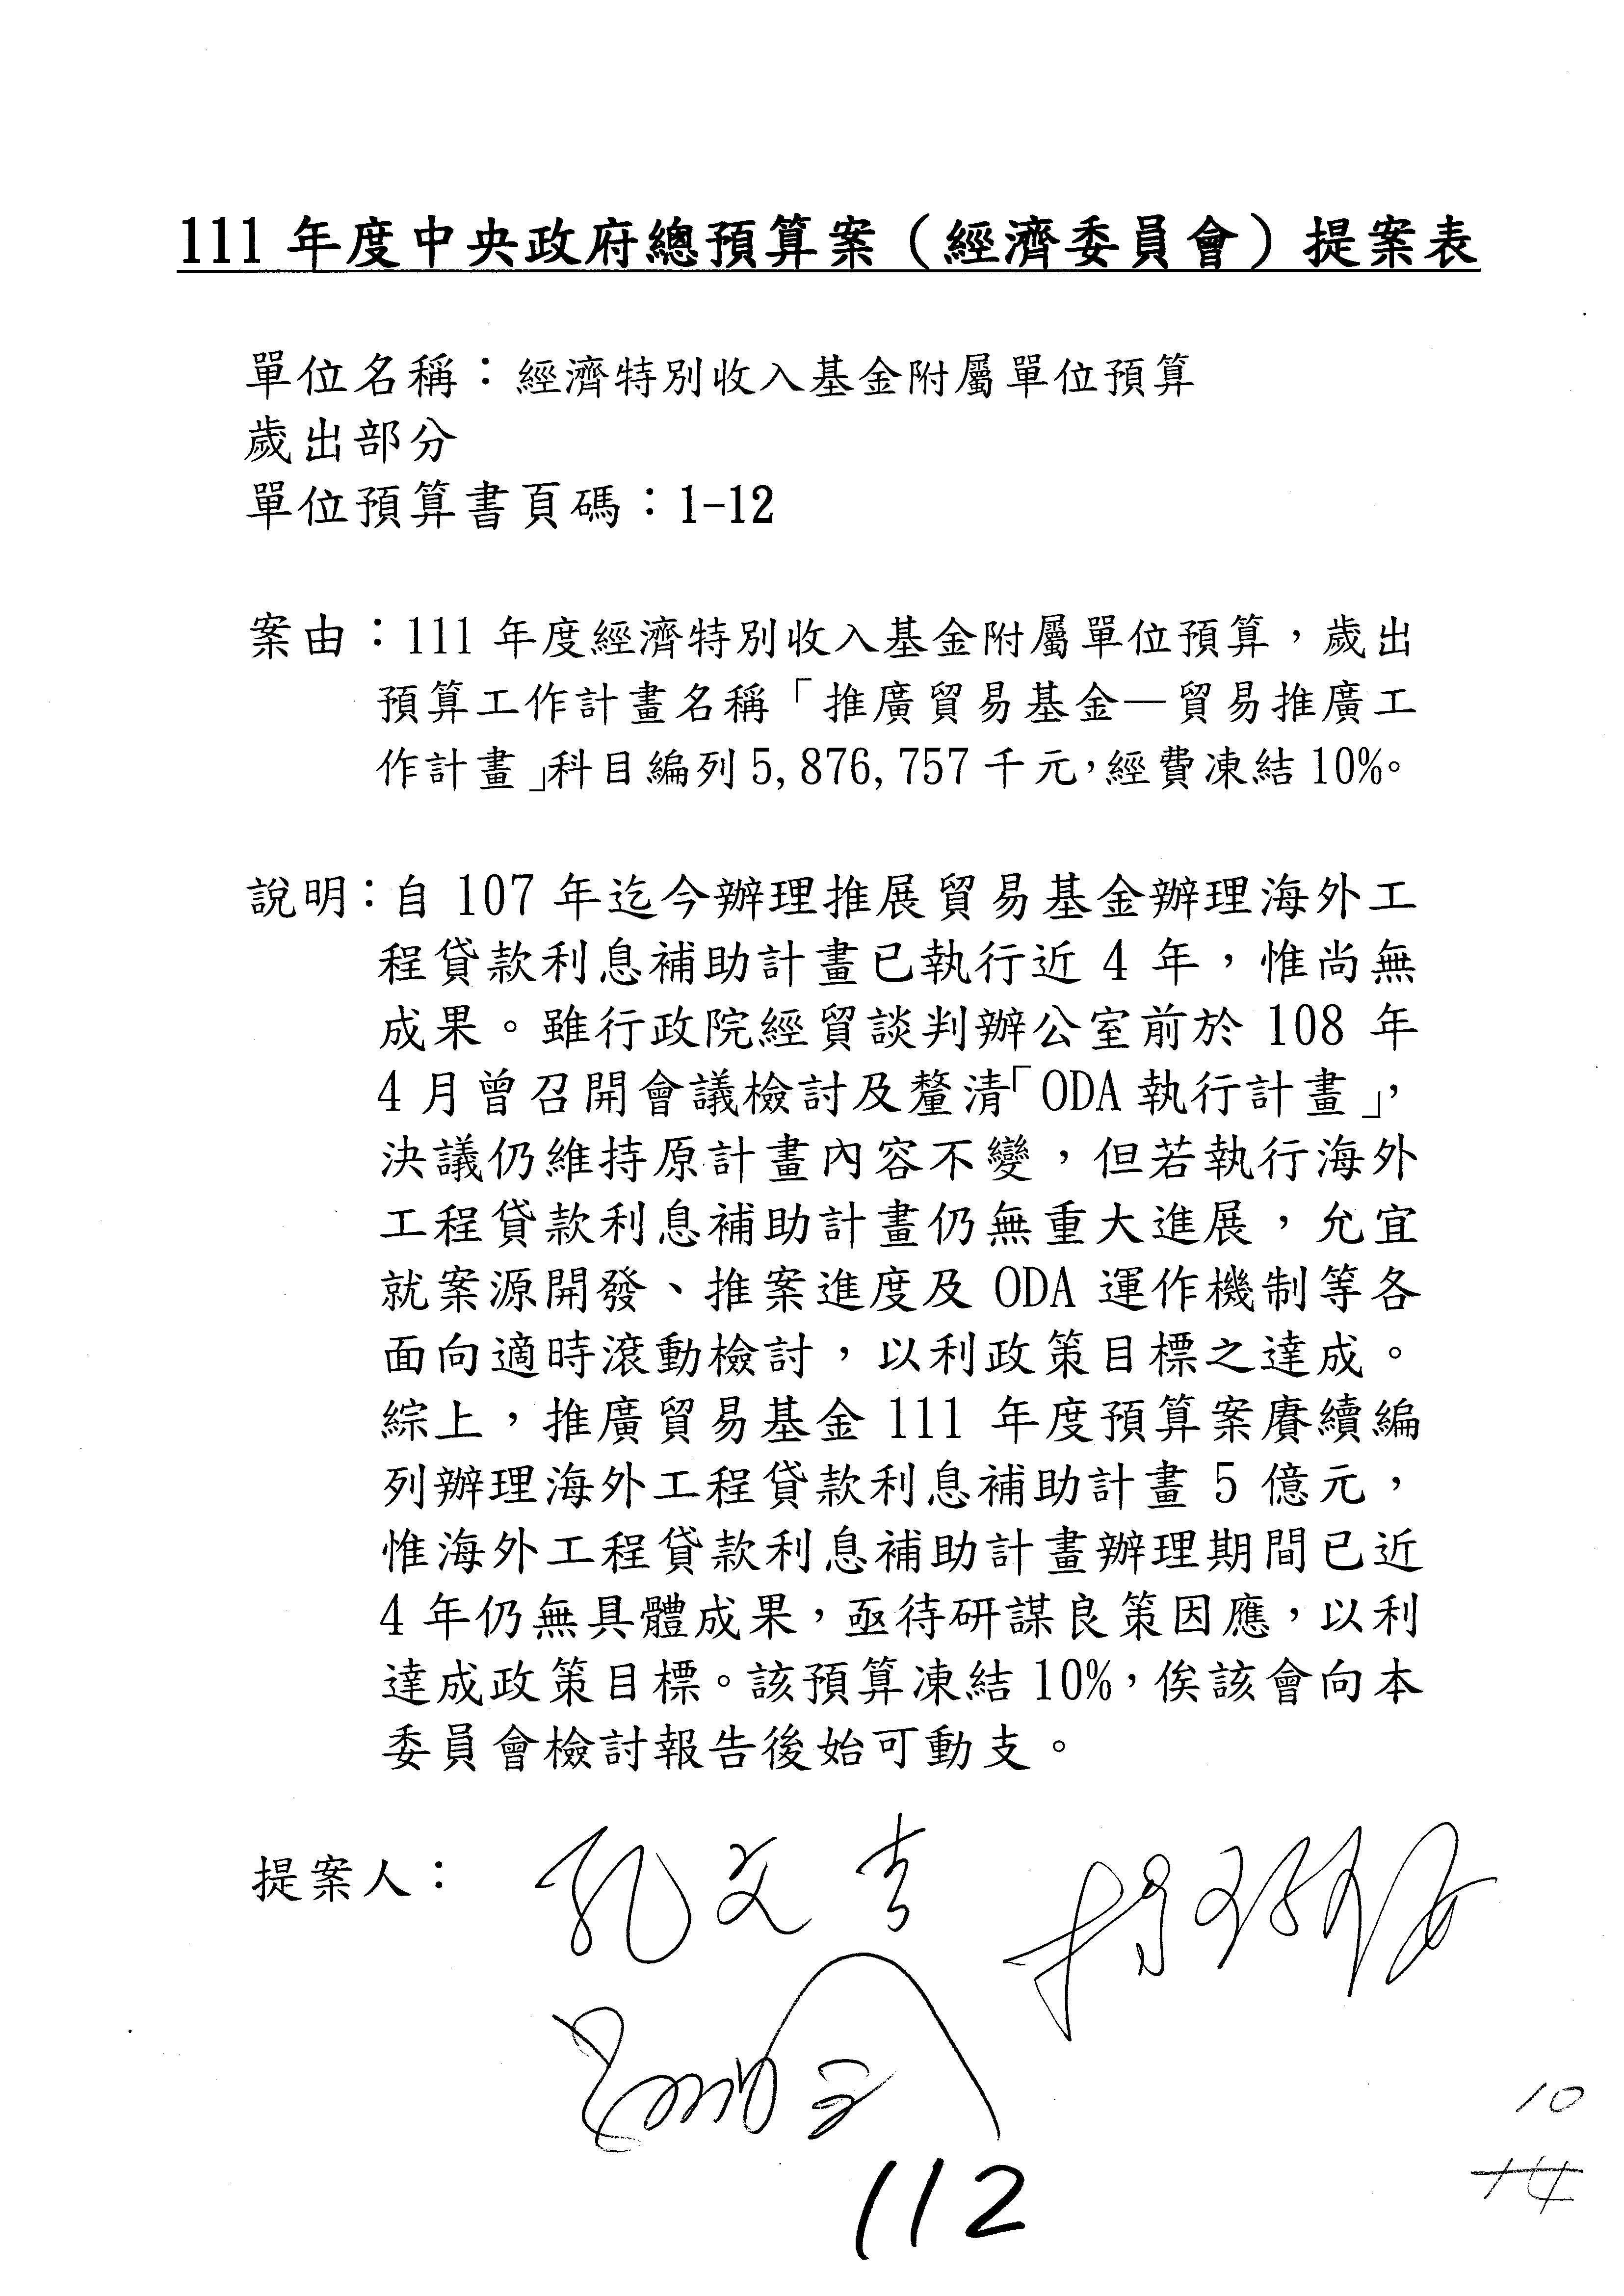 111 年度中央政府總預算案（經濟委員會）提案表
單位名稱：經濟特別收入基金附屬單位預算
歲出部分
單位預算書頁碼：1-12
案由：111 年度經濟特別收入基金附屬單位預算，歲出
預算工作計畫名稱「推廣貿易基金—貿易推廣工
作計畫」科目編列 5,876,757 千元，經費凍結 10%。
說明：自 107 年迄今辦理推展貿易基金辦理海外工
程貸款利息補助計畫已執行近 4 年，惟尚無
成果。雖行政院經貿談判辦公室前於 108 年
4 月曾召開會議檢討及釐清「ODA 執行計畫」，
決議仍維持原計畫內容不變，但若執行海外
工程貸款利息補助計畫仍無重大進展，允宜
就案源開發、推案進度及 ODA 運作機制等各
面向適時滾動檢討，以利政策目標之達成。
綜上，推廣貿易基金 111 年度預算案賡續編
列辦理海外工程貸款利息補助計畫 5 億元，
惟海外工程貸款利息補助計畫辦理期間已近
4 年仍無具體成果，亟待研謀良策因應，以利
達成政策目標。該預算凍結 10%，俟該會向本
委員會檢討報告後始可動支。
提案人：孔文吉
10
14
112